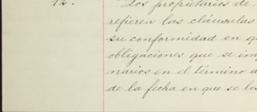 12. Los propietarios de
refieren las cláusulas
su conformidad en q
obligaciones que se im
narios en el término a
de la fecha en que se les